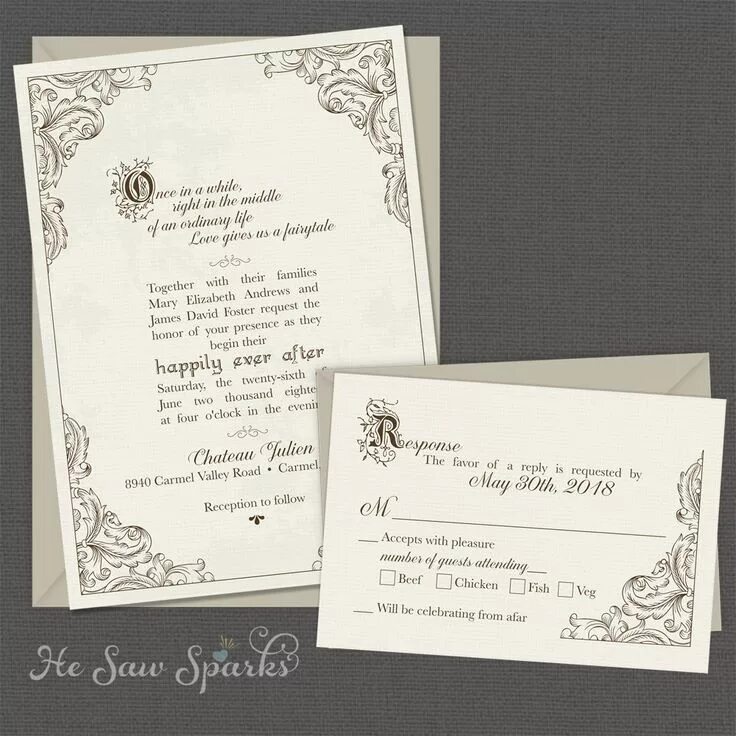 Once in a while,
right in the middle
of an ordinary life
Love gives us a fairytale
Together with their families
Mary Elizabeth Andrews and
James David Foster request the
honor of your presence as they
begin their
happily ever after
Saturday, the twenty-sixth
June two thousand
at four o'clock in the
Chateau Julien
8940 Carmel Valley Road • Carmel,
Reception to follow
Response
The favor of a reply is requested by
May 30th, 2018
M
Accepts with pleasure
number of guests attending
Beef Chicken Fish Veg
Will be celebrating from afar
He Saw Sparks